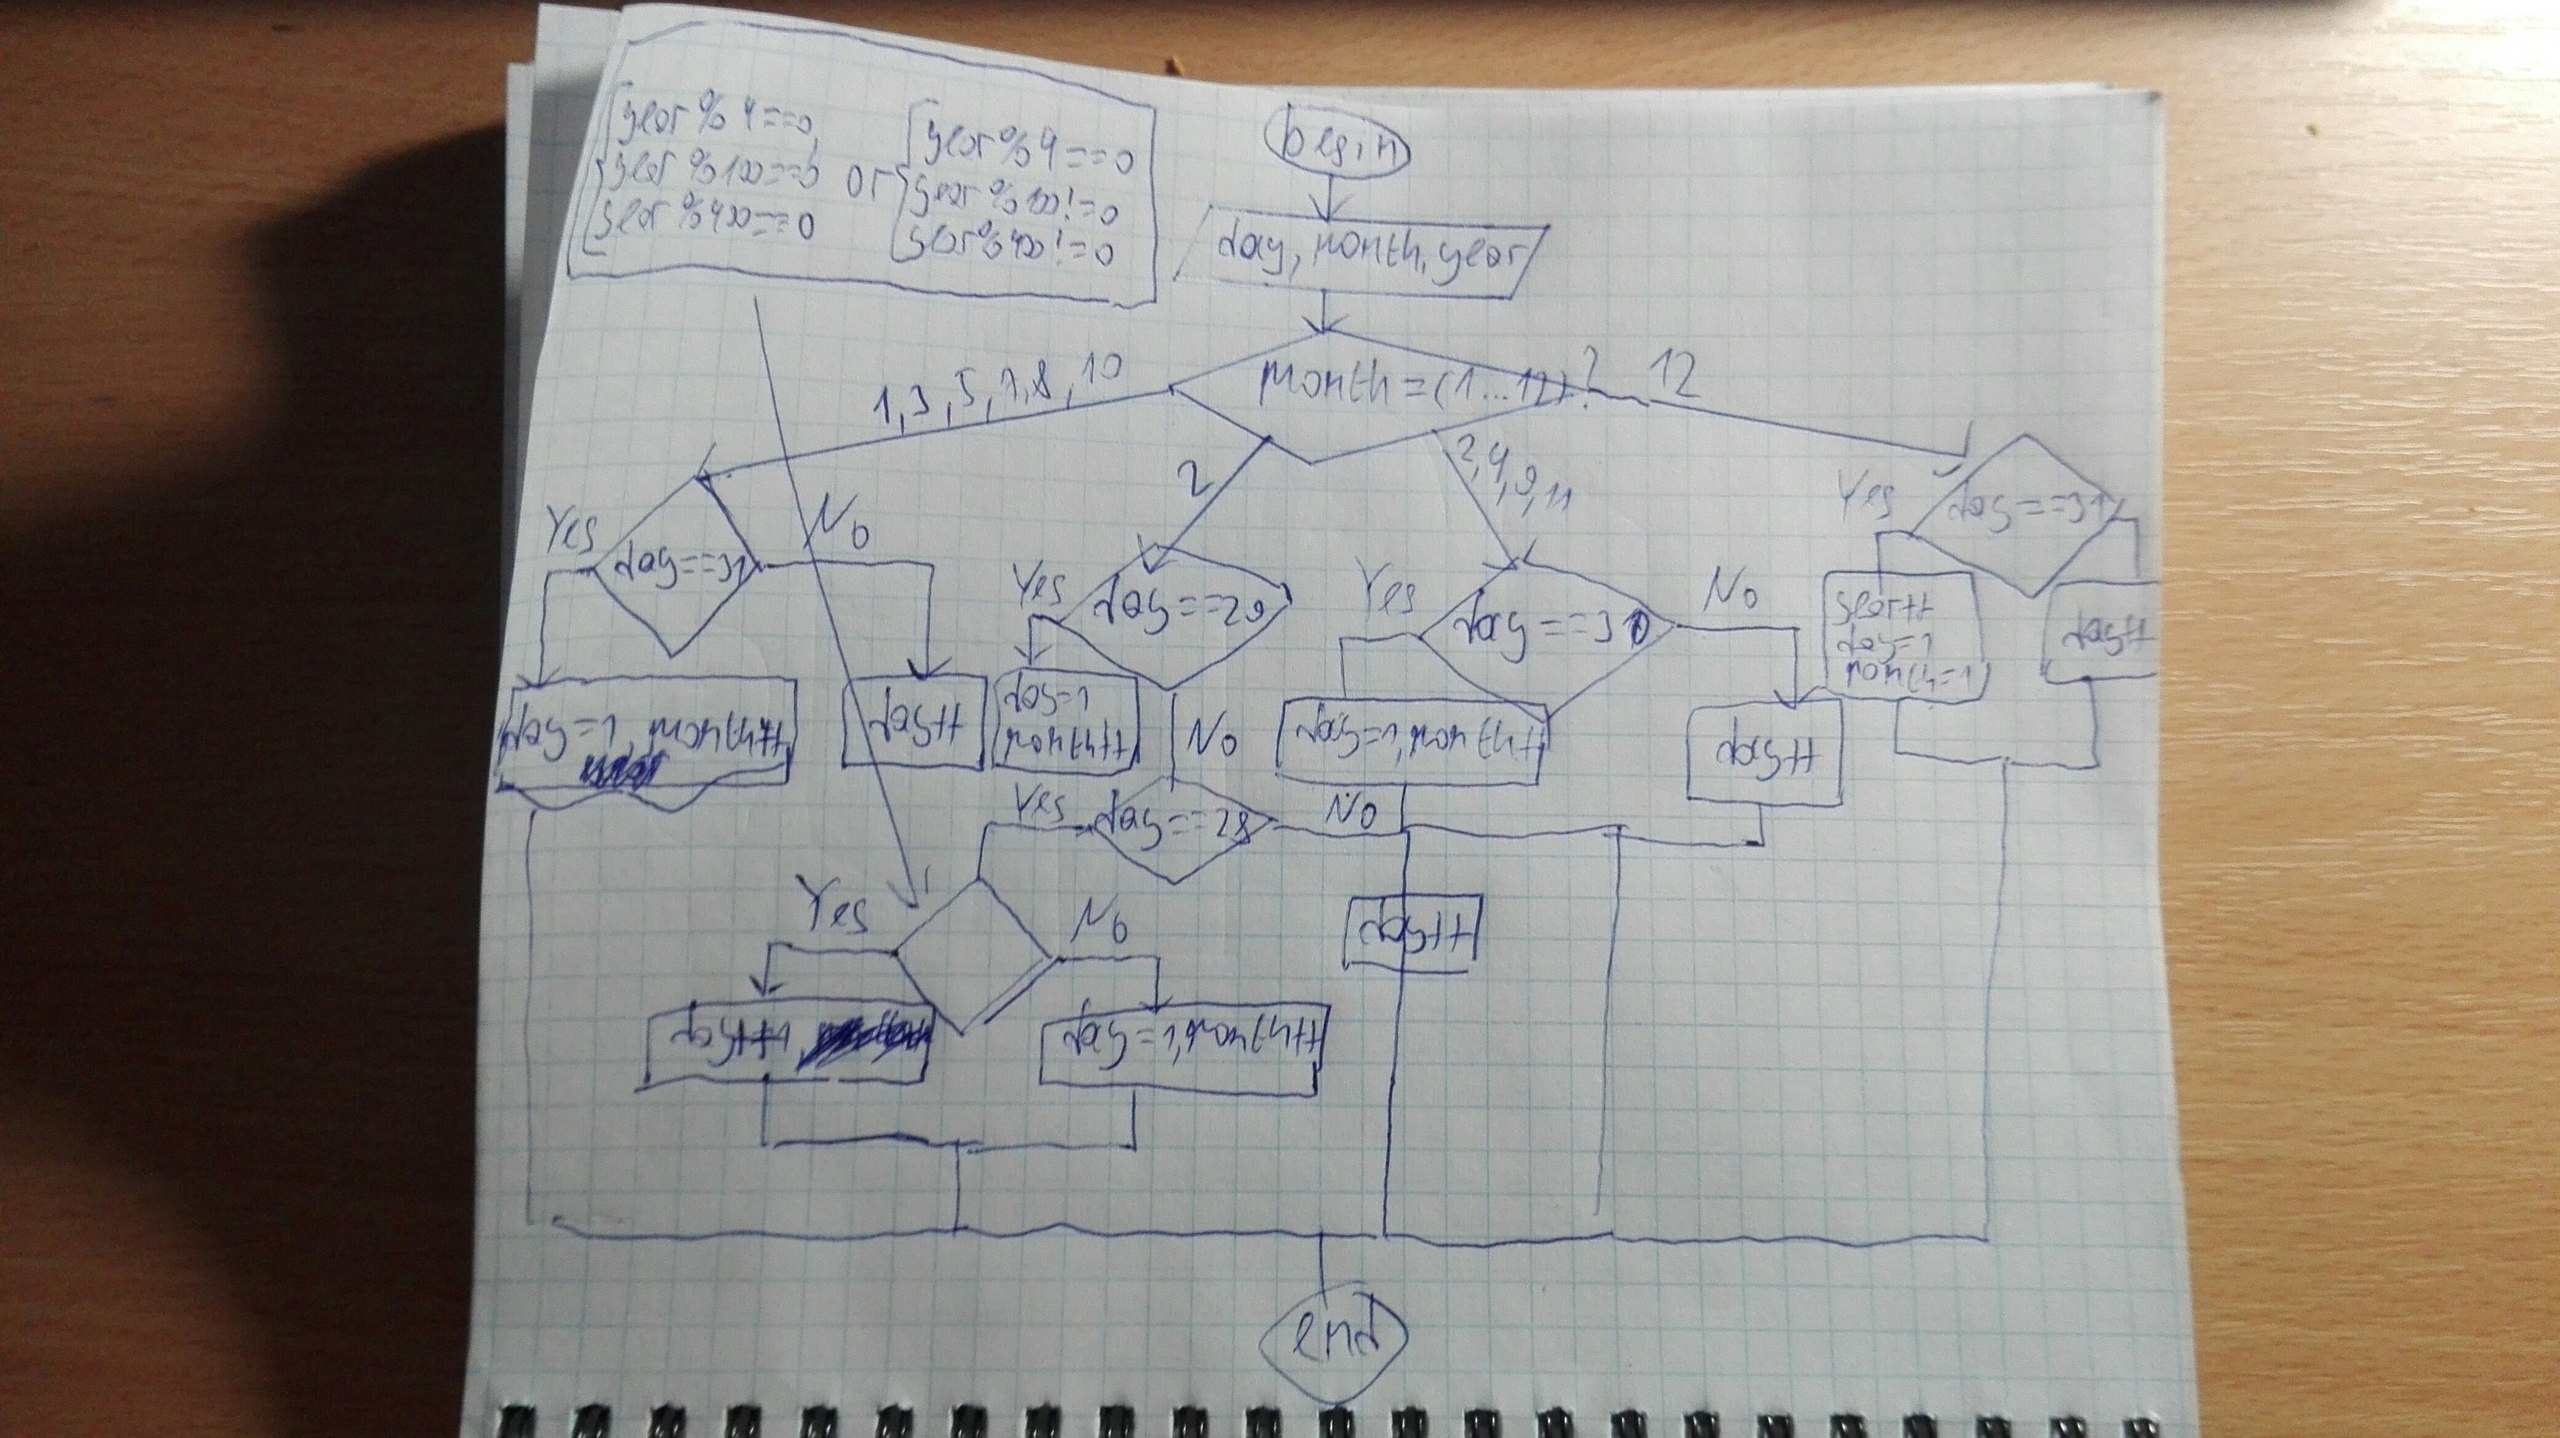 year % 4 == 0,
year % 100 == 0
year % 400 == 0
or
year % 4 == 0
year % 100 != 0
year % 400 != 0
begin
day, month, year
month = (1...12)?
1, 3, 5, 7, 8, 10
2
2, 4, 9, 11
12
Yes
day == 31
No
Yes
day == 29
No
Yes
day == 30
No
Yes
day == 31
day = 1, month++
day++
day = 1
month++
day = 1, month++
day++
year++
day = 1
month = 1
day++
Yes
day == 28
No
day++
Yes
No
day++
day = 1, month++
end